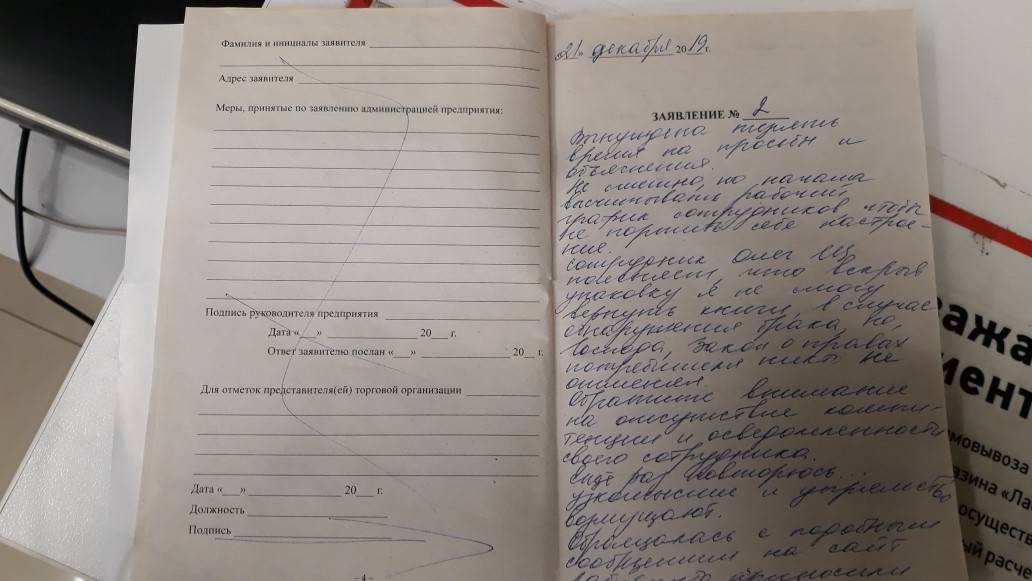 Фамилия и инициалы заявителя
Адрес заявителя
Меры, принятые по заявлению администрацией предприятия:
Подпись руководителя предприятия
Дата «___» 20___ г.
Ответ заявителю послан «___» 20___ г.
Для отметок представителя(ей) торговой организации
Дата «___» 20___ г.
Должность
Подпись
– 4 –
«21» декабря 2019 г.
ЗАЯВЛЕНИЕ № 2
Вынуждена терять
время на просьбы и
объяснения.
Не смешно, но начала
высчитывать рабочий
график сотрудников чтобы
не портить себе настрое-
ние.
Сотрудник Олег Ш.
поясняет, что вскрыв
упаковку я не смогу
вернуть книги, в случае
обнаружения брака, но,
господа, Закон о правах
потребителя никто не
отменял.
Обратите внимание
на отсутствие компи-
тенции и осведомленности
своего сотрудника.
Ещё раз повторюсь...
узкомыслие и упрямство
возмущают.
Обращалась с подобным
сообщением на сайт
приносили
важа
мент
мовывоза
азина «Ла
осуществ
ый расче